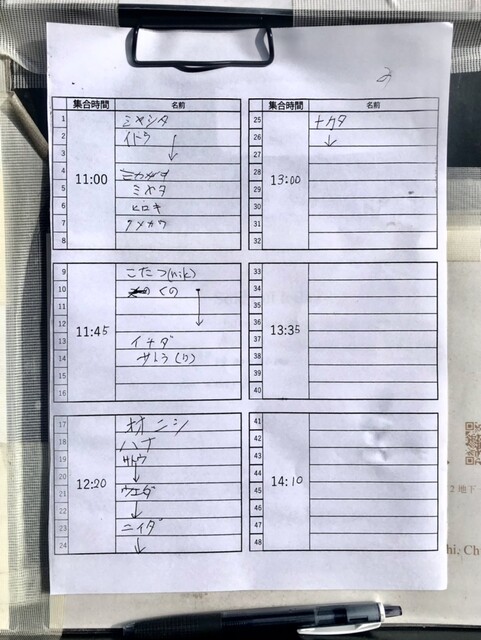 2
集合時間 名前
11:00
1 ミヤシタ
2 イトウ
3 ↓
4
5 ミヤタ
6 ヒロキ
7
8
11:45
9 こたつ(nik)
10 くの
11
12 ↓
13 イチダ
14 サトう(り)
15
16
12:20
17 オオニシ
18 ハナ
19 サトウ
20 ↓
21 ウエダ
22 ↓
23 ニイダ
24 ↓
集合時間 名前
13:00
25 ナカタ
26 ↓
27
28
29
30
31
32
13:35
33
34
35
36
37
38
39
40
14:10
41
42
43
44
45
46
47
48
2 地下
hi, Ch